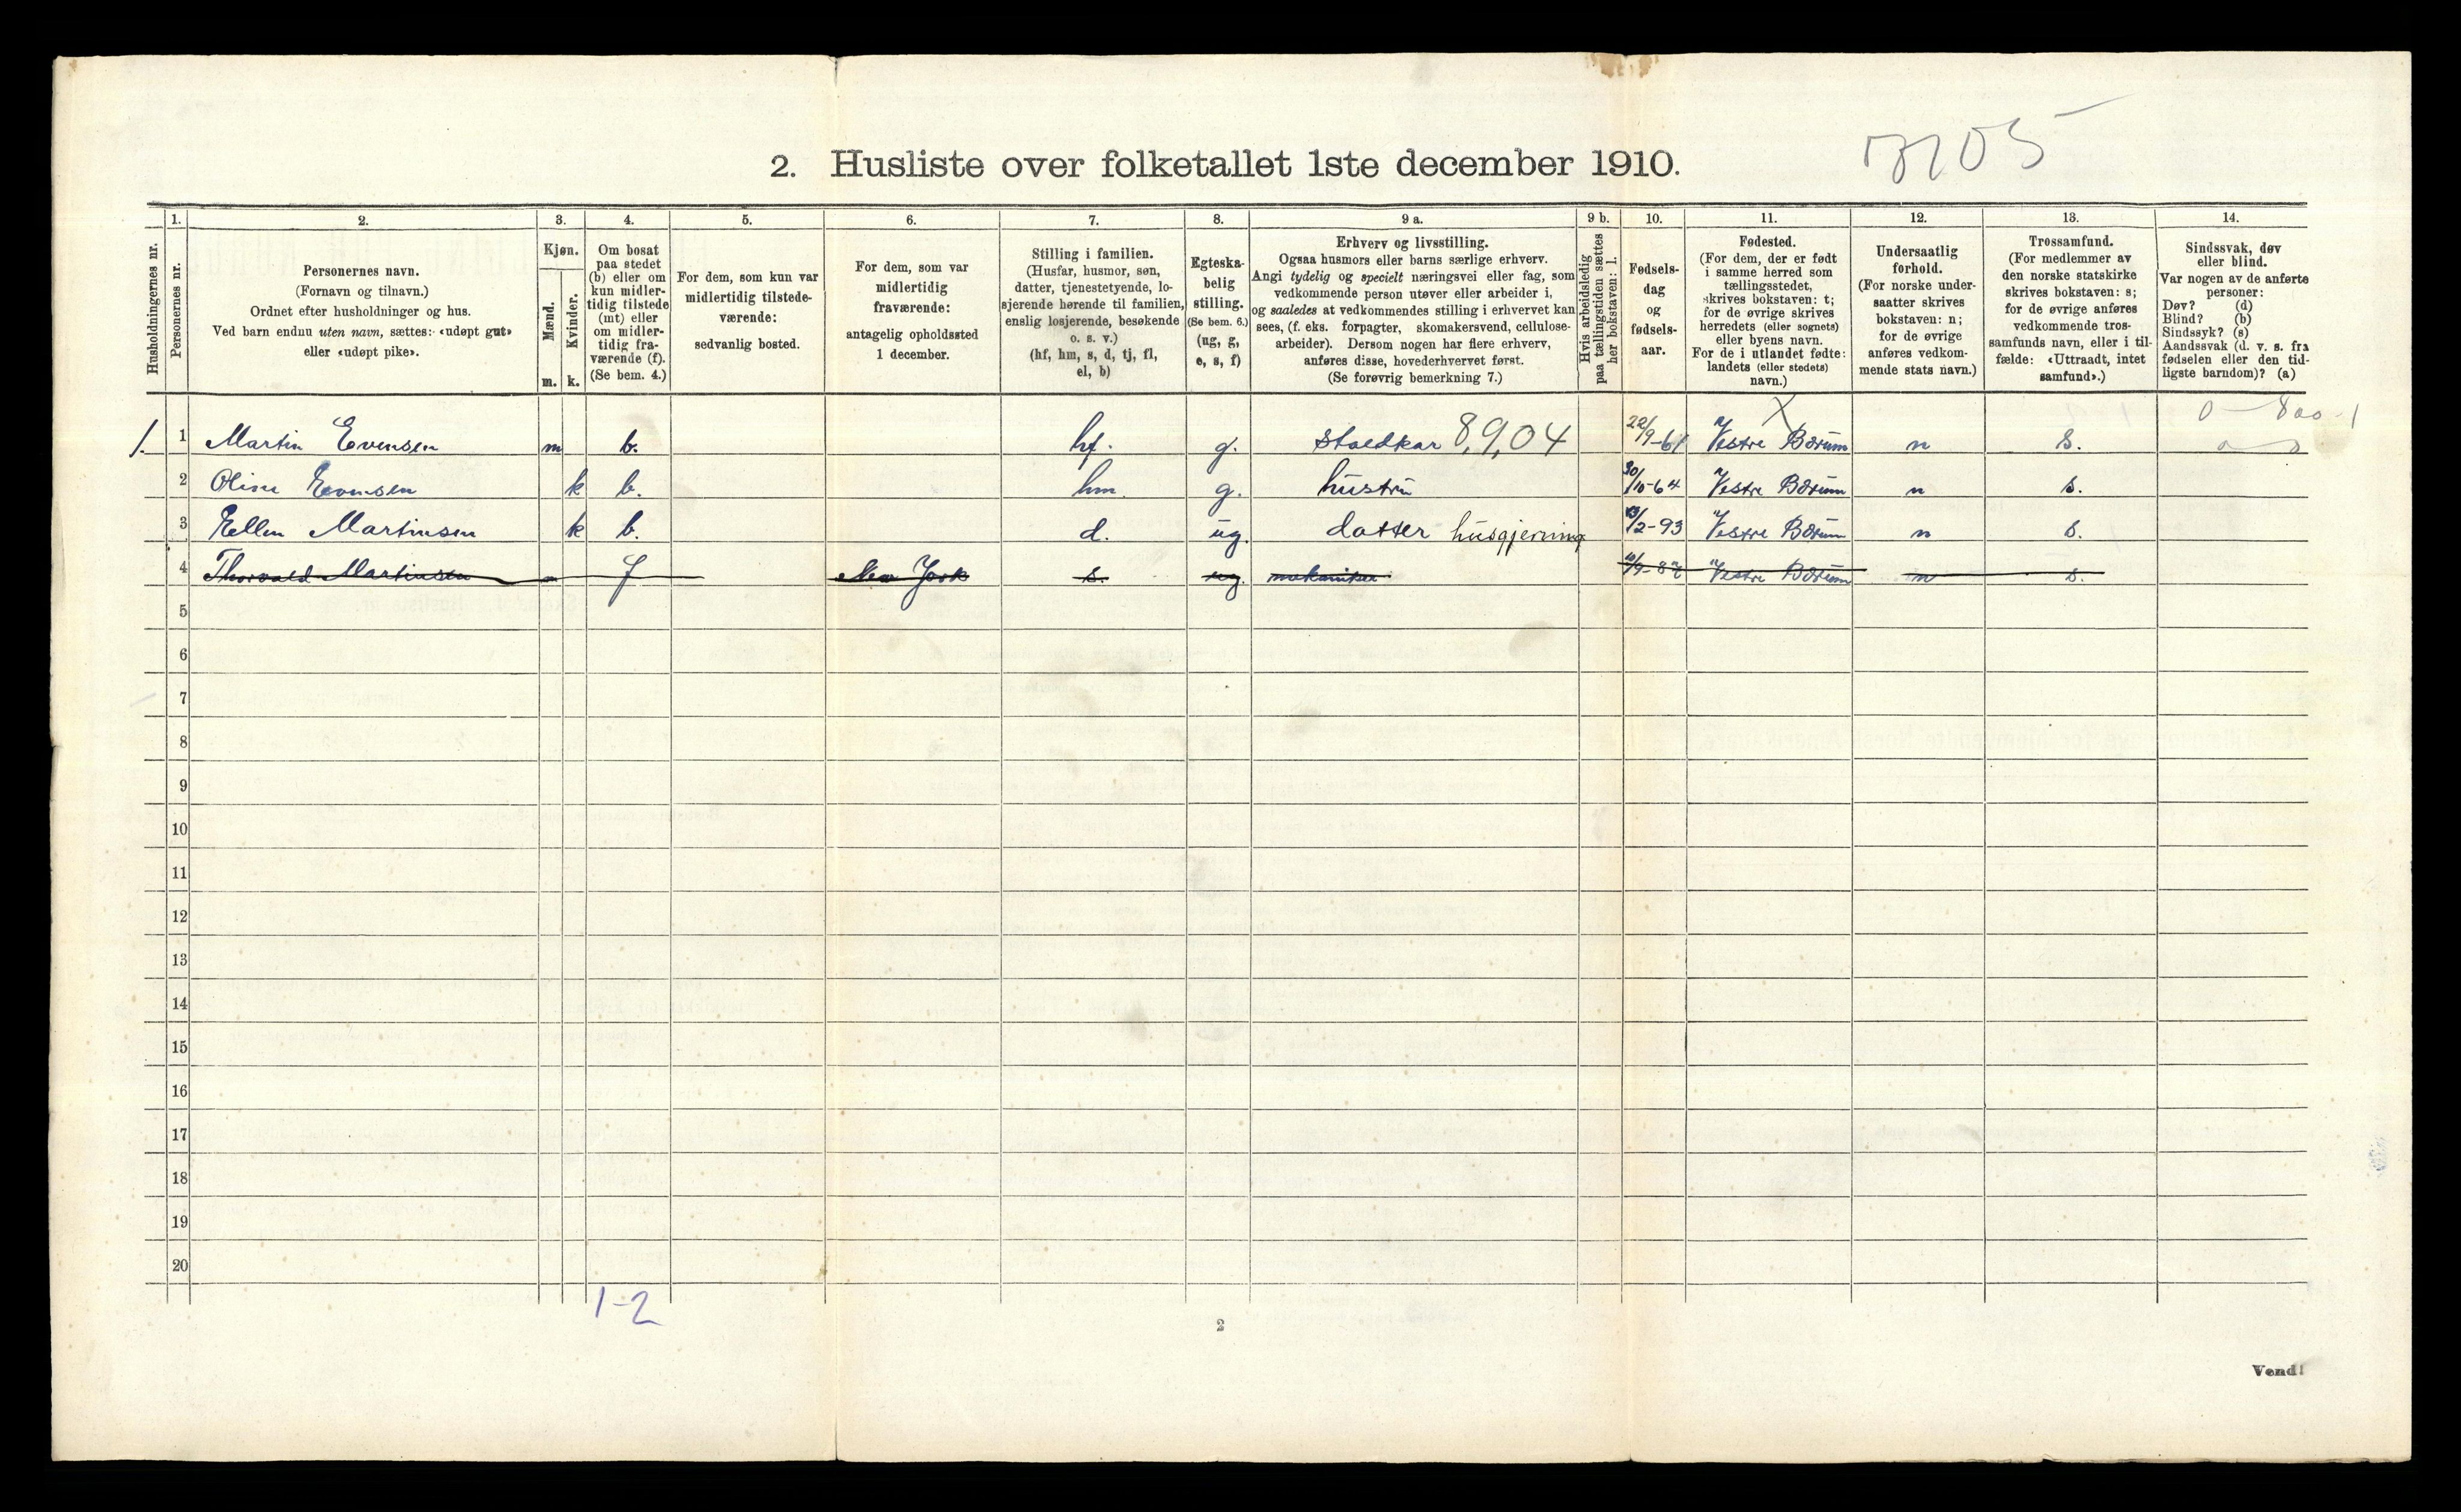 2. Husliste over folketallet 1ste december 1910.
Husholdningernes nr.
1.
Personernes nr.
2.
Personernes navn.
(Fornavn og tilnavn.)
Ordnet efter husholdninger og hus.
Ved barn endnu uten navn, sættes: «udøpt gut»
eller «udøpt pike».
3.
Kjøn.
Mænd.
m.
Kvinder.
k.
4.
Om bosat
paa stedet
(b) eller om
kun midler-
tidig tilstede
(mt) eller
om midler-
tidig fra-
værende (f).
(Se bem. 4.)
5.
For dem, som kun var
midlertidig tilstede-
værende:
sedvanlig bosted.
6.
For dem, som var
midlertidig
fraværende:
antagelig opholdssted
1 december.
7.
Stilling i familien.
(Husfar, husmor, søn,
datter, tjenestetyende, lo-
sjerende hørende til familien,
enslig losjerende, besøkende
o. s. v.)
(hf, hm, s, d, tj, fl,
el, b)
8.
Egteska-
belig
stilling.
(Se bem. 6.)
(ug, g,
e, s, f)
9 a.
Erhverv og livsstilling.
Ogsaa husmors eller barns særlige erhverv.
Angi tydelig og specielt næringsvei eller fag, som
vedkommende person utøver eller arbeider i,
og saaledes at vedkommendes stilling i erhvervet kan
sees, (f. eks. forpagter, skomakersvend, cellulose-
arbeider). Dersom nogen har flere erhverv,
anføres disse, hovederhvervet først.
(Se forøvrig bemerkning 7.)
9 b.
Hvis arbeidsledig
paa tællingstiden sættes
her bokstaven: l.
10.
Fødsels-
dag
og
fødsels-
aar.
11.
Fødested.
(For dem, der er født
i samme herred som
tællingsstedet,
skrives bokstaven: t;
for de øvrige skrives
herredets (eller sognets)
eller byens navn.
For de i utlandet fødte:
landets (eller stedets)
navn.)
12.
Undersaatlig
forhold.
(For norske under-
saatter skrives
bokstaven: n;
for de øvrige
anføres vedkom-
mende stats navn.)
13.
Trossamfund.
(For medlemmer av
den norske statskirke
skrives bokstaven: s;
for de øvrige anføres
vedkommende tros-
samfunds navn, eller i til-
fælde: «Uttraadt, intet
samfund».)
14.
Sindssvak, døv
eller blind.
Var nogen av de anførte
personer:
Døv? (d)
Blind? (b)
Sindssyk? (s)
Aandssvak (d. v. s. fra
fødselen eller den tid-
ligste barndom)? (a)
1. 1 Martin Evensen m b. hf. g. Staldkar 8,9,04 22/9-61 Vestre Bærum n s.
2 Oline Evensen k b. hm g. hustru 30/10-64 Vestre Bærum n s.
3 Ellen Martinsen k b. d. ug. datter husgjerning /2-93 Vestre Bærum n s.
4 Thorvald Martinsen m f New York s. ug. mekaniker Vestre Bærum n s.
5
6
7
8
9
10
11
12
13
14
15
16
17
18
19
20
1-2
2
Vend!